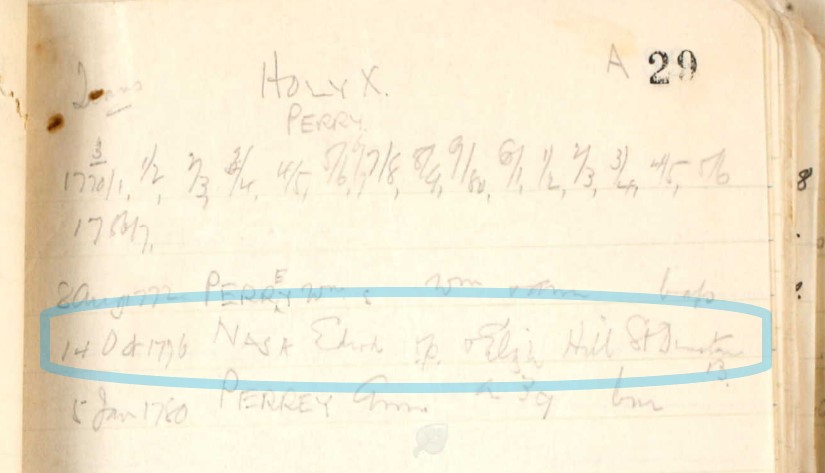 HOLY X. A 29
PERRY
1770/1, 1/2, 2/3, 3/4, 4/5, 5/6, 6/7, 7/8, 8/9, 9/80, 1/2, 2/3, 3/4, 4/5, 5/6
1786/7,
2 Aug 1772 PERREY Wm s Wm bap
14 Oct 1776 NASH Edwd & Eliz Hill St Dunstan
B.
5 Jan 1780 PERREY Ann bur